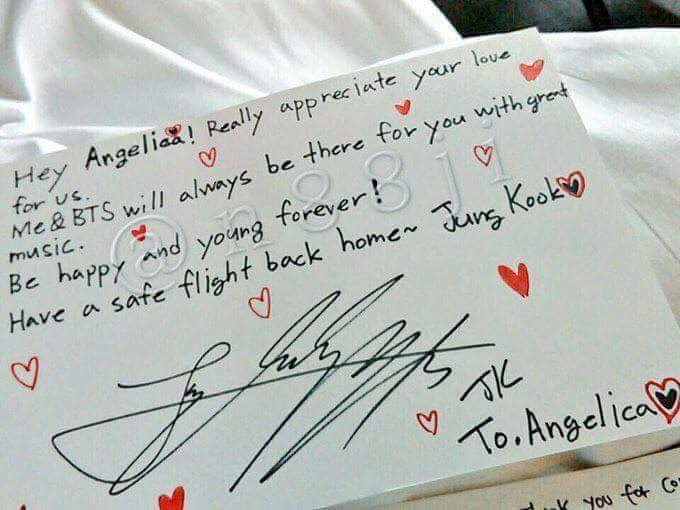 Hey Angelica! Really appreciate your love
for us.
Me & BTS will always be there for you with great
music.
Be happy and young forever!
Have a safe flight back home~ Jung Kook
@n88ji
JK
To. Angelica
you for